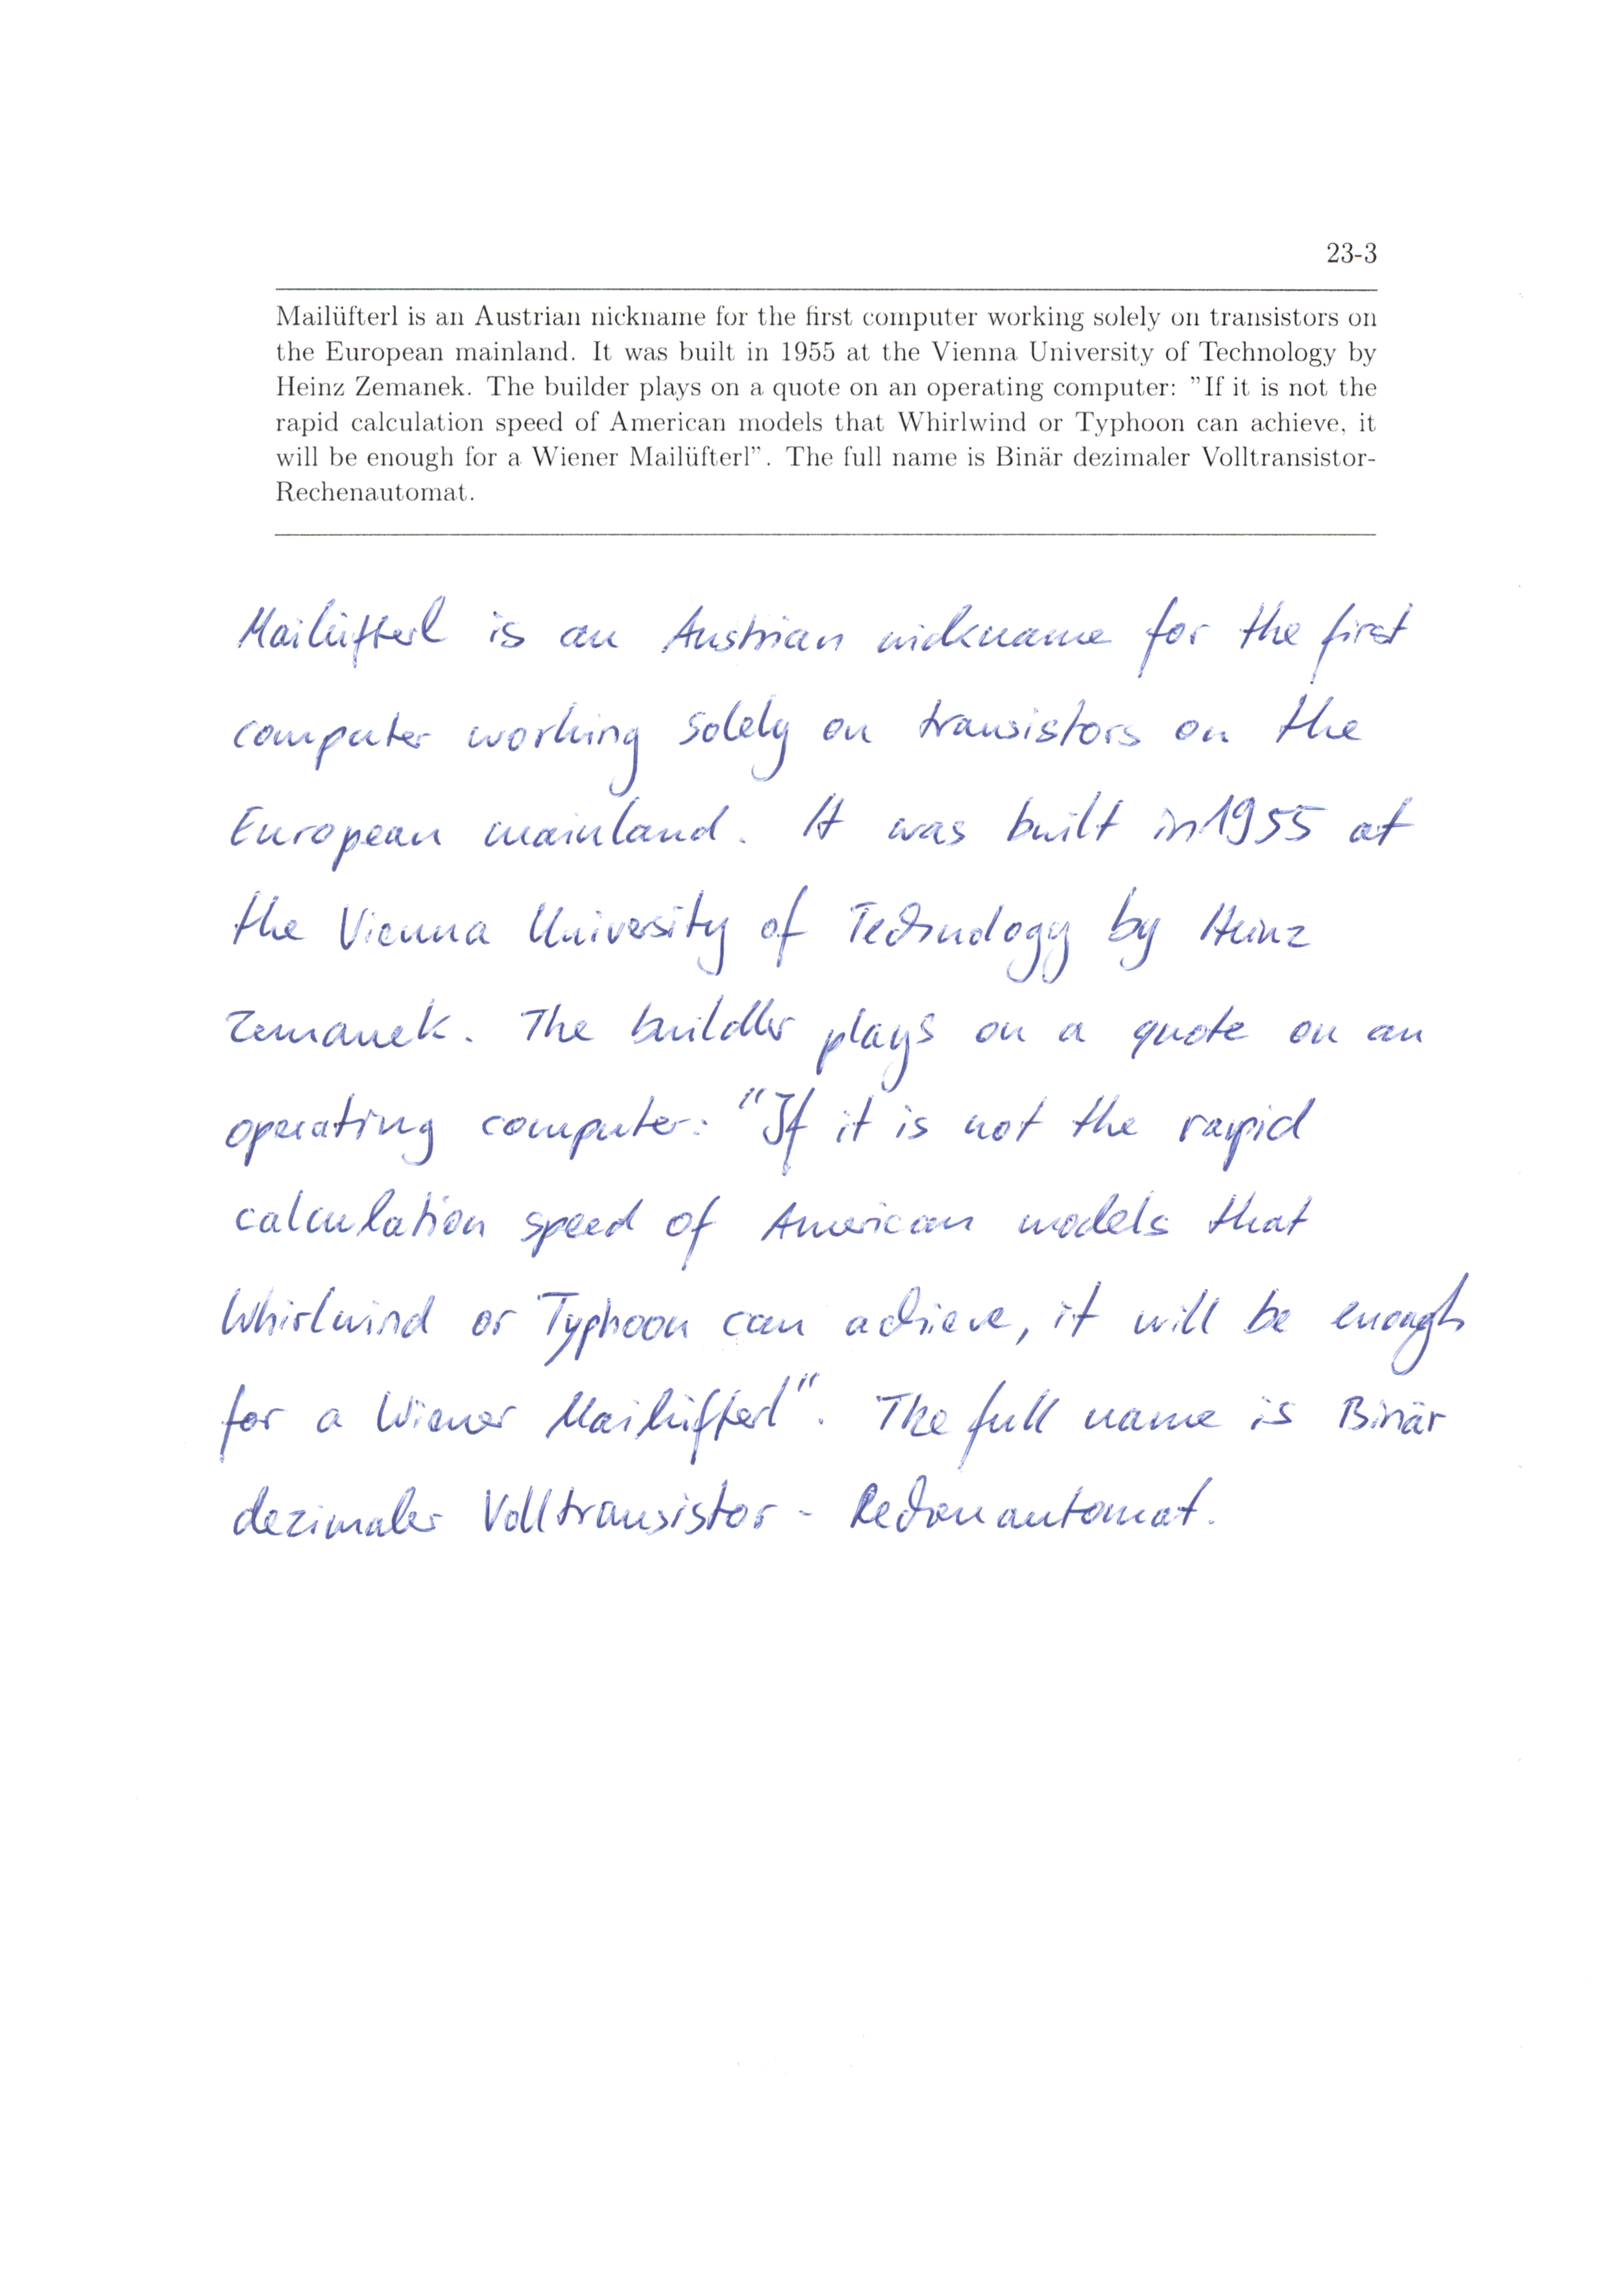 23-3
Mailüfterl is an Austrian nickname for the first computer working solely on transistors on
the European mainland. It was built in 1955 at the Vienna University of Technology by
Heinz Zemanek. The builder plays on a quote on an operating computer: "If it is not the
rapid calculation speed of American models that Whirlwind or Typhoon can achieve, it
will be enough for a Wiener Mailüfterl". The full name is Binär dezimaler Volltransistor-
Rechenautomat.
Mailüfterl is an Austrian nickname for the first
computer working solely on transistors on the
European mainland. It was built in 1955 at
the Vienna University of Technology by Heinz
Zemanek. The buildler plays on a quote on an
operating computer: "If it is not the rapid
calculation speed of American models that
Whirlwind or Typhoon can achieve, it will be enough
for a Wiener Mailüfterl". The full name is Binär
dezimaler Volltransistor - Rechenautomat.